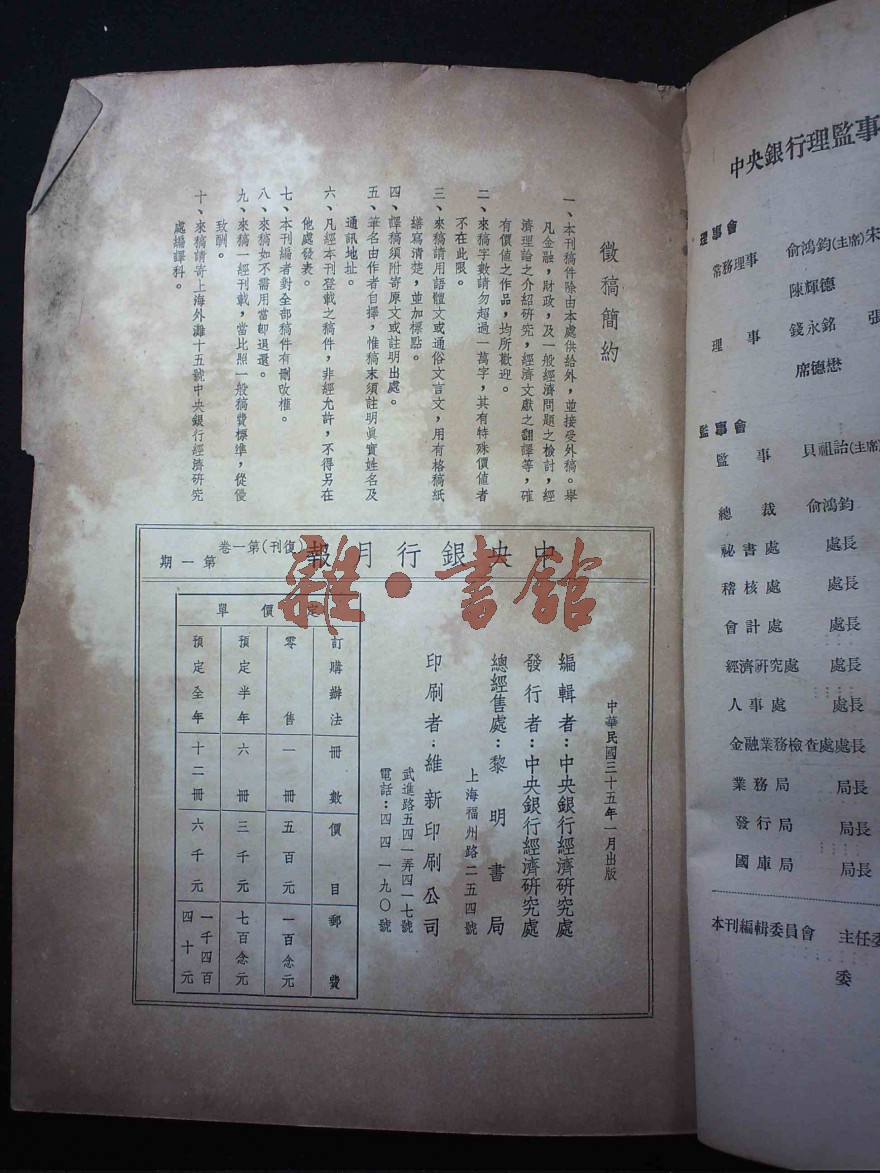 徵稿簡約
一、本刊稿件除由本處供給外，並接受外稿。舉
凡金融，財政，及一般經濟問題之檢討，經
濟理論之介紹研究，經濟文獻之翻譯等，確
有價値之作品，均所歡迎。
二、來稿字數請勿超過一萬字，其有特殊價値者
不在此限。
三、來稿請用語體文或通俗文言文，用有格稿紙
繕寫清楚，並加標點。
四、譯稿須附寄原文或註明出處。
五、筆名由作者自擇，惟稿末須註明眞實姓名及
通訊地址。
六、凡經本刊登載之稿件，非經允許，不得另在
他處發表。
七、本刊編者對全部稿件有刪改權。
八、來稿如不需用當卽退還。
九、來稿一經刊載，當比照一般稿費標準，從優
致酬。
十、來稿請寄上海外灘十五號中央銀行經濟研究
處編譯科。
中央銀行月報(復刊)第一卷第一期
中華民國三十五年一月出版
編輯者：中央銀行經濟研究處
發行者：中央銀行經濟研究處
總經售處：黎明書局
上海福州路二五四號
印刷者：維新印刷公司
武進路五四一弄四一七號
電話：四四一九〇號
定價單
訂購辦法 冊數 價目 郵費
零售 一冊 五百元 一百念元
預定半年 六冊 三千元 七百念元
預定全年 十二冊 六千元 一千四百四十元
雜·書館
中央銀行理監事
理事會
常務理事 俞鴻鈞(主席)宋
陳輝德
理事 錢永銘 張
席德懋
監事會
監事 貝祖詒(主席)
總裁 俞鴻鈞
祕書處 處長
稽核處 處長
會計處 處長
經濟研究處 處長
人事處 處長
金融業務檢查處處長
業務局 局長
發行局 局長
國庫局 局長
本刊編輯委員會 主任委
委